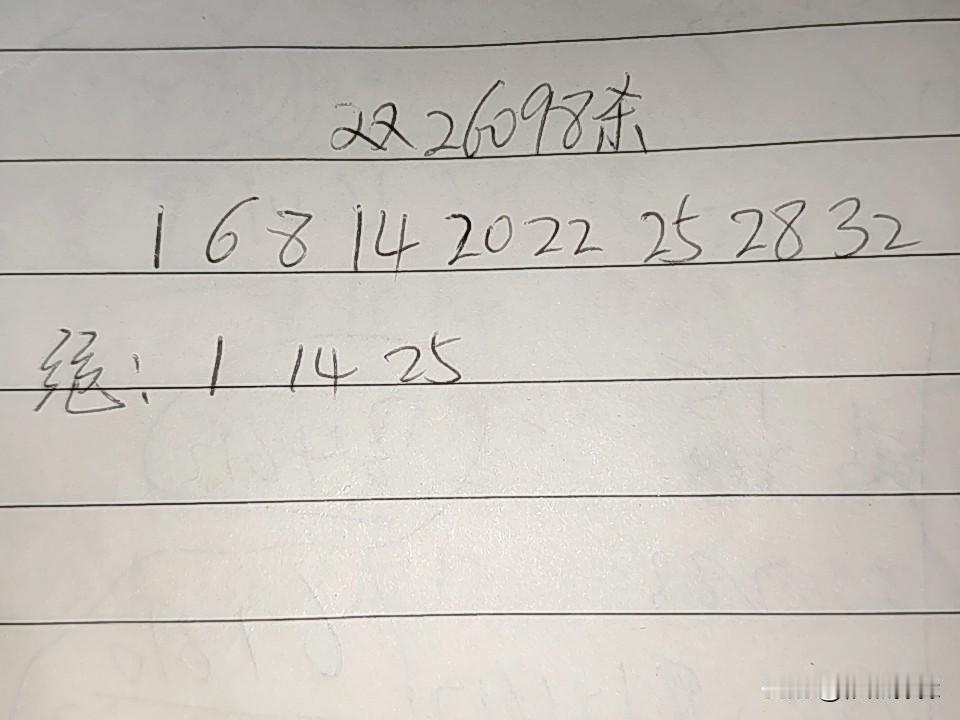 双26098杀
1 6 8 14 20 22 25 28 32
绝: 1 14 25